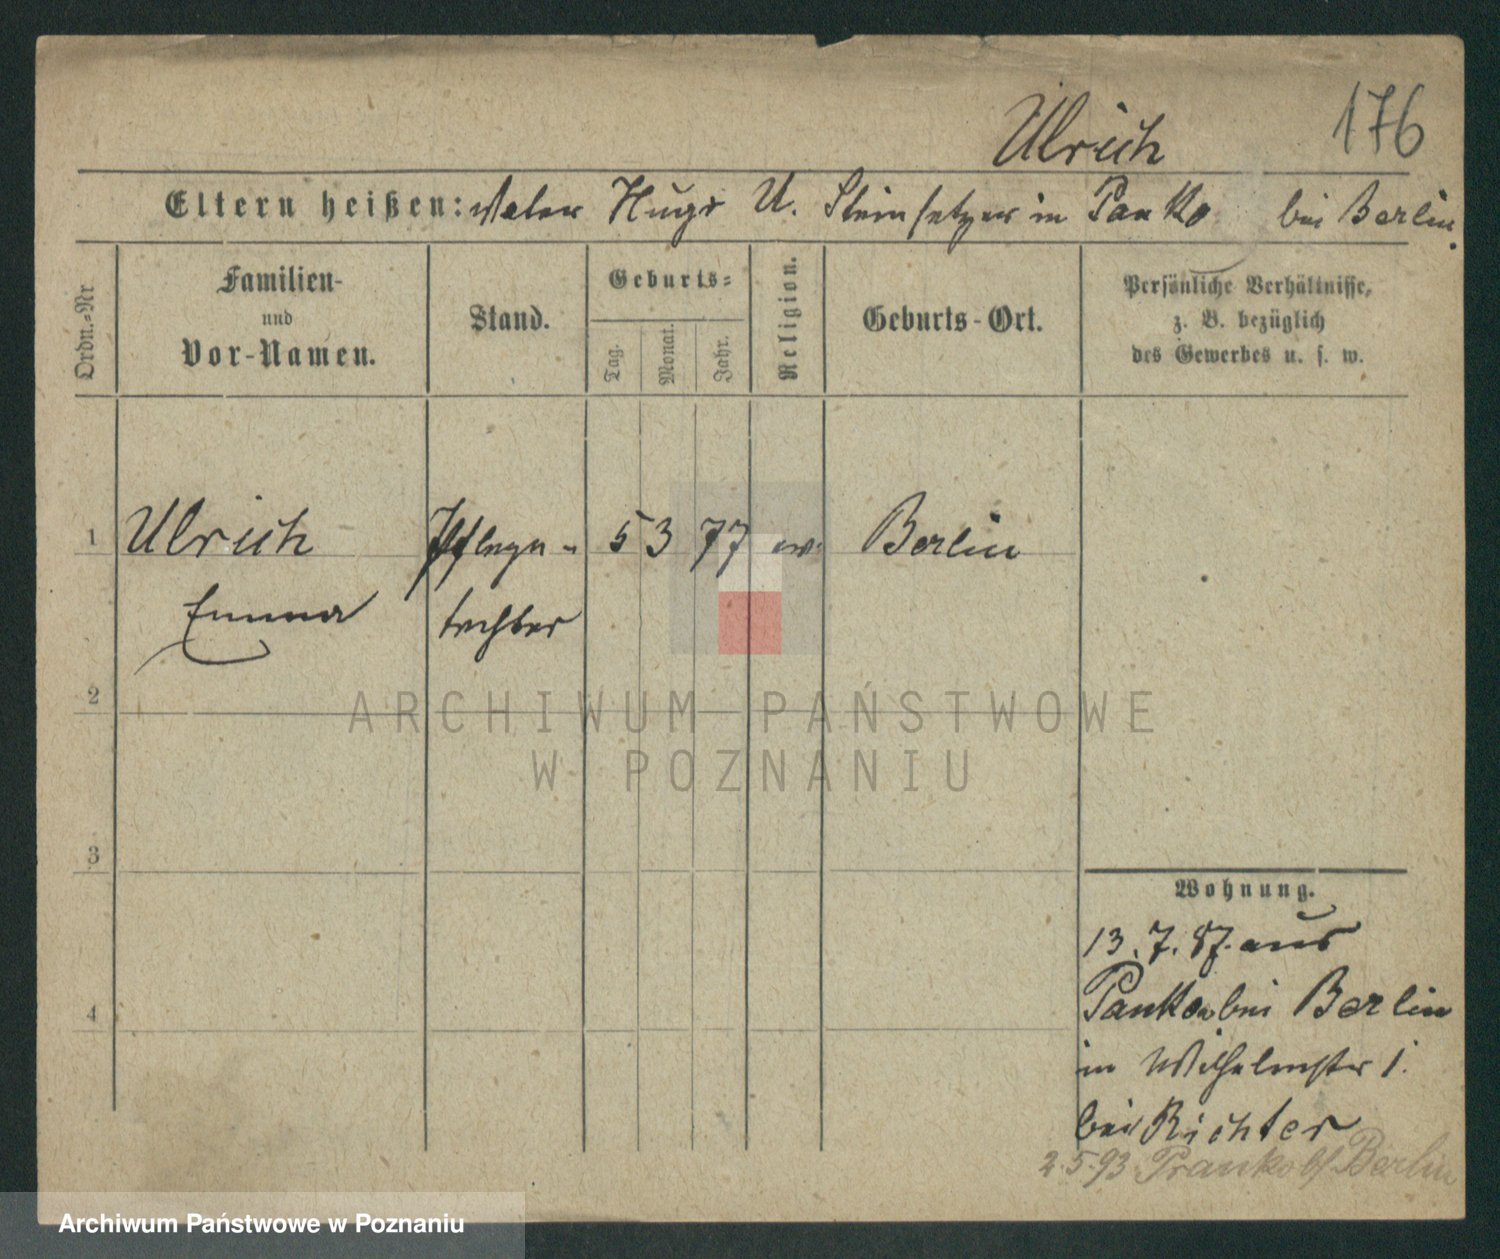 Ulrich 176
Eltern heißen: Vater Hugo U. Steinsetzer in Panko bei Berlin.
Ordn.=Nr
Familien-
und
Vor-Namen.
Stand.
Geburts=
Tag.
Monat.
Jahr.
Religion.
Geburts-Ort.
Persönliche Verhältnisse,
z. B. bezüglich
des Gewerbes u. s. w.
1 Ulrich Pflege- 5 3 77 ev. Berlin
Emma tochter
2
ARCHIWUM PAŃSTWOWE
W POZNANIU
3
Wohnung.
13.7.87. aus
Panko bei Berlin
4
in Wilhelmstr 1.
bei Richter
2.5.93 Pranko b/ Berlin
Archiwum Państwowe w Poznaniu